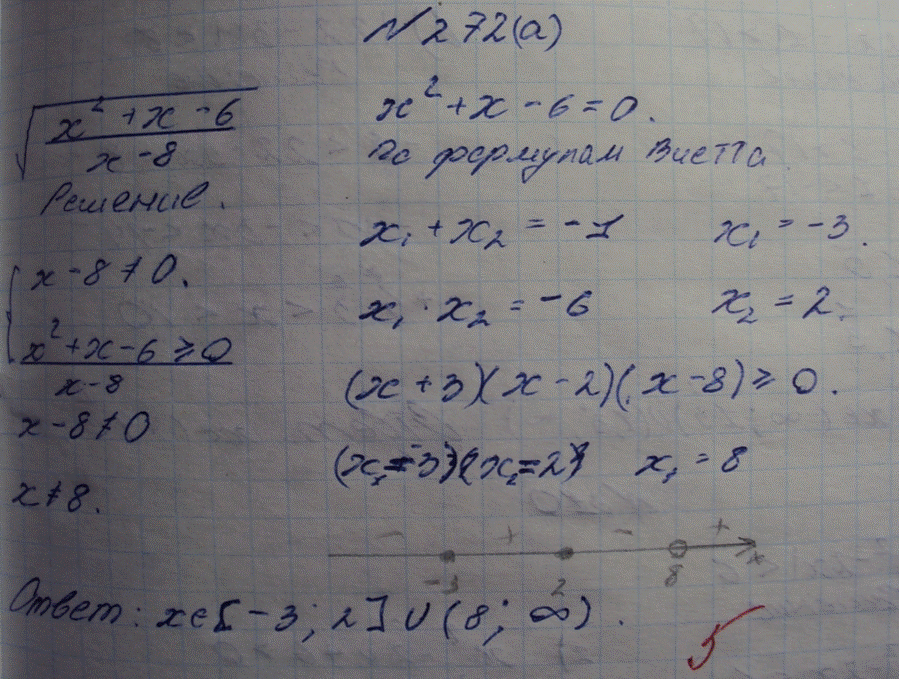 N 272(а)
√((x² + x - 6)/(x - 8))
Решение.
{ x - 8 ≠ 0.
(x² + x - 6)/(x - 8) ≥ 0
x - 8 ≠ 0
x ≠ 8.
x² + x - 6 = 0.
По формулам Виетта
x₁ + x₂ = -1 x₁ = -3.
x₁ · x₂ = -6 x₂ = 2.
(x + 3)(x - 2)(x - 8) ≥ 0.
(x₁ = -3)(x₂ = 2) x₃ = 8
- + - +
-3 2 8 x
Ответ: x ∈ [-3; 2] ∪ (8; ∞).
5